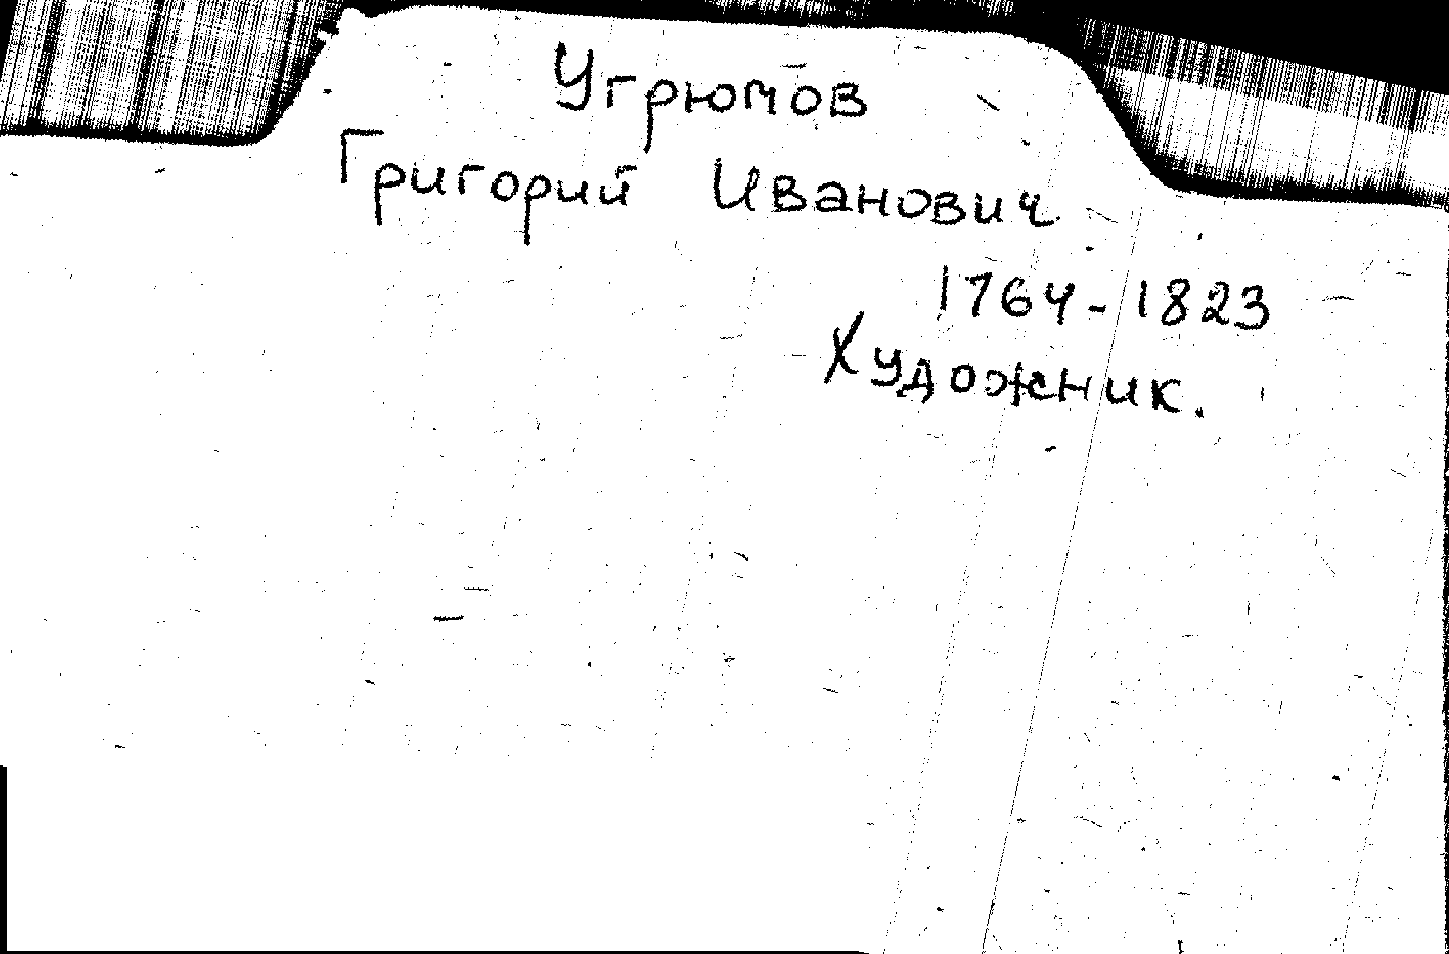 Угрюмов
Григорий Иванович
1764-1823
Художник.